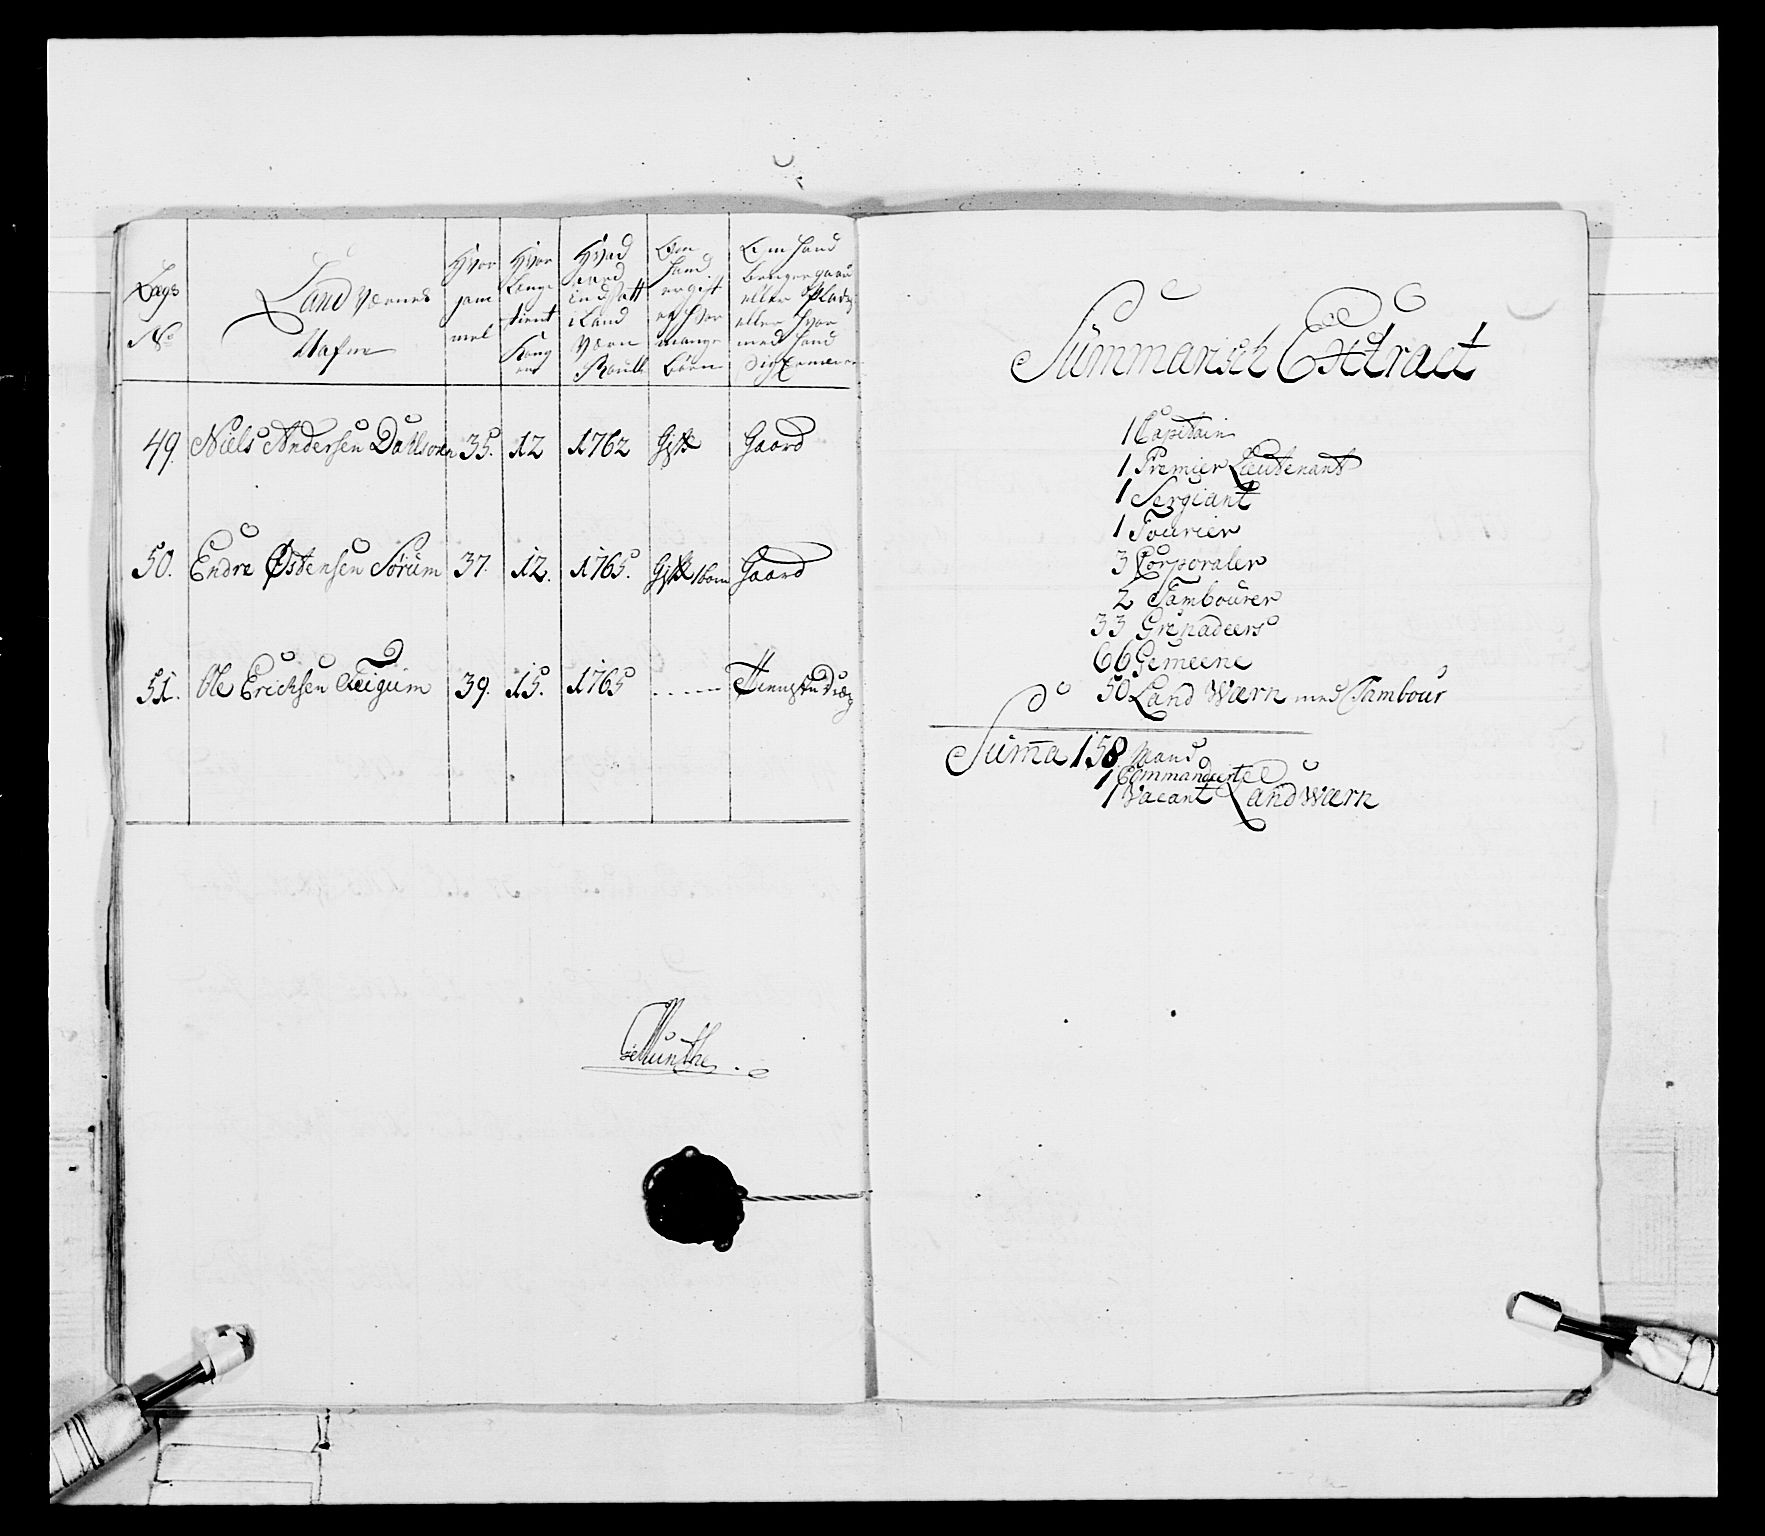 Lægs No
Land Værnes Nafne
Hvor gammel
Hvor Lange tient Kongen
Hvad aard indsatt i Land Værn Roulle
Om hand er gift og hvor mange børn
Om hand bruger gaard eller Plads eller hvor med hand sig Ernærer
49. Niels Andersen Dahlsøren 35. 12 1762 Gift Gaard
50. Endre Østensen Sørum 37. 12. 1765. Gift 1 barn Gaard
51. Ole Erichsen Feigum 39. 15. 1765 ----
Munthe.
Summarisch Extract
1 Capitain
1 Premier Lieutenant
1 Sergiant
1 Fourier
3 Corporaler
2 Tambourer
33 Grenadeers
66 Gemeene
50 Land Wærn med Tambour
Suma 158 Mand
1 Commandeert
1 Vacant Land Wærn